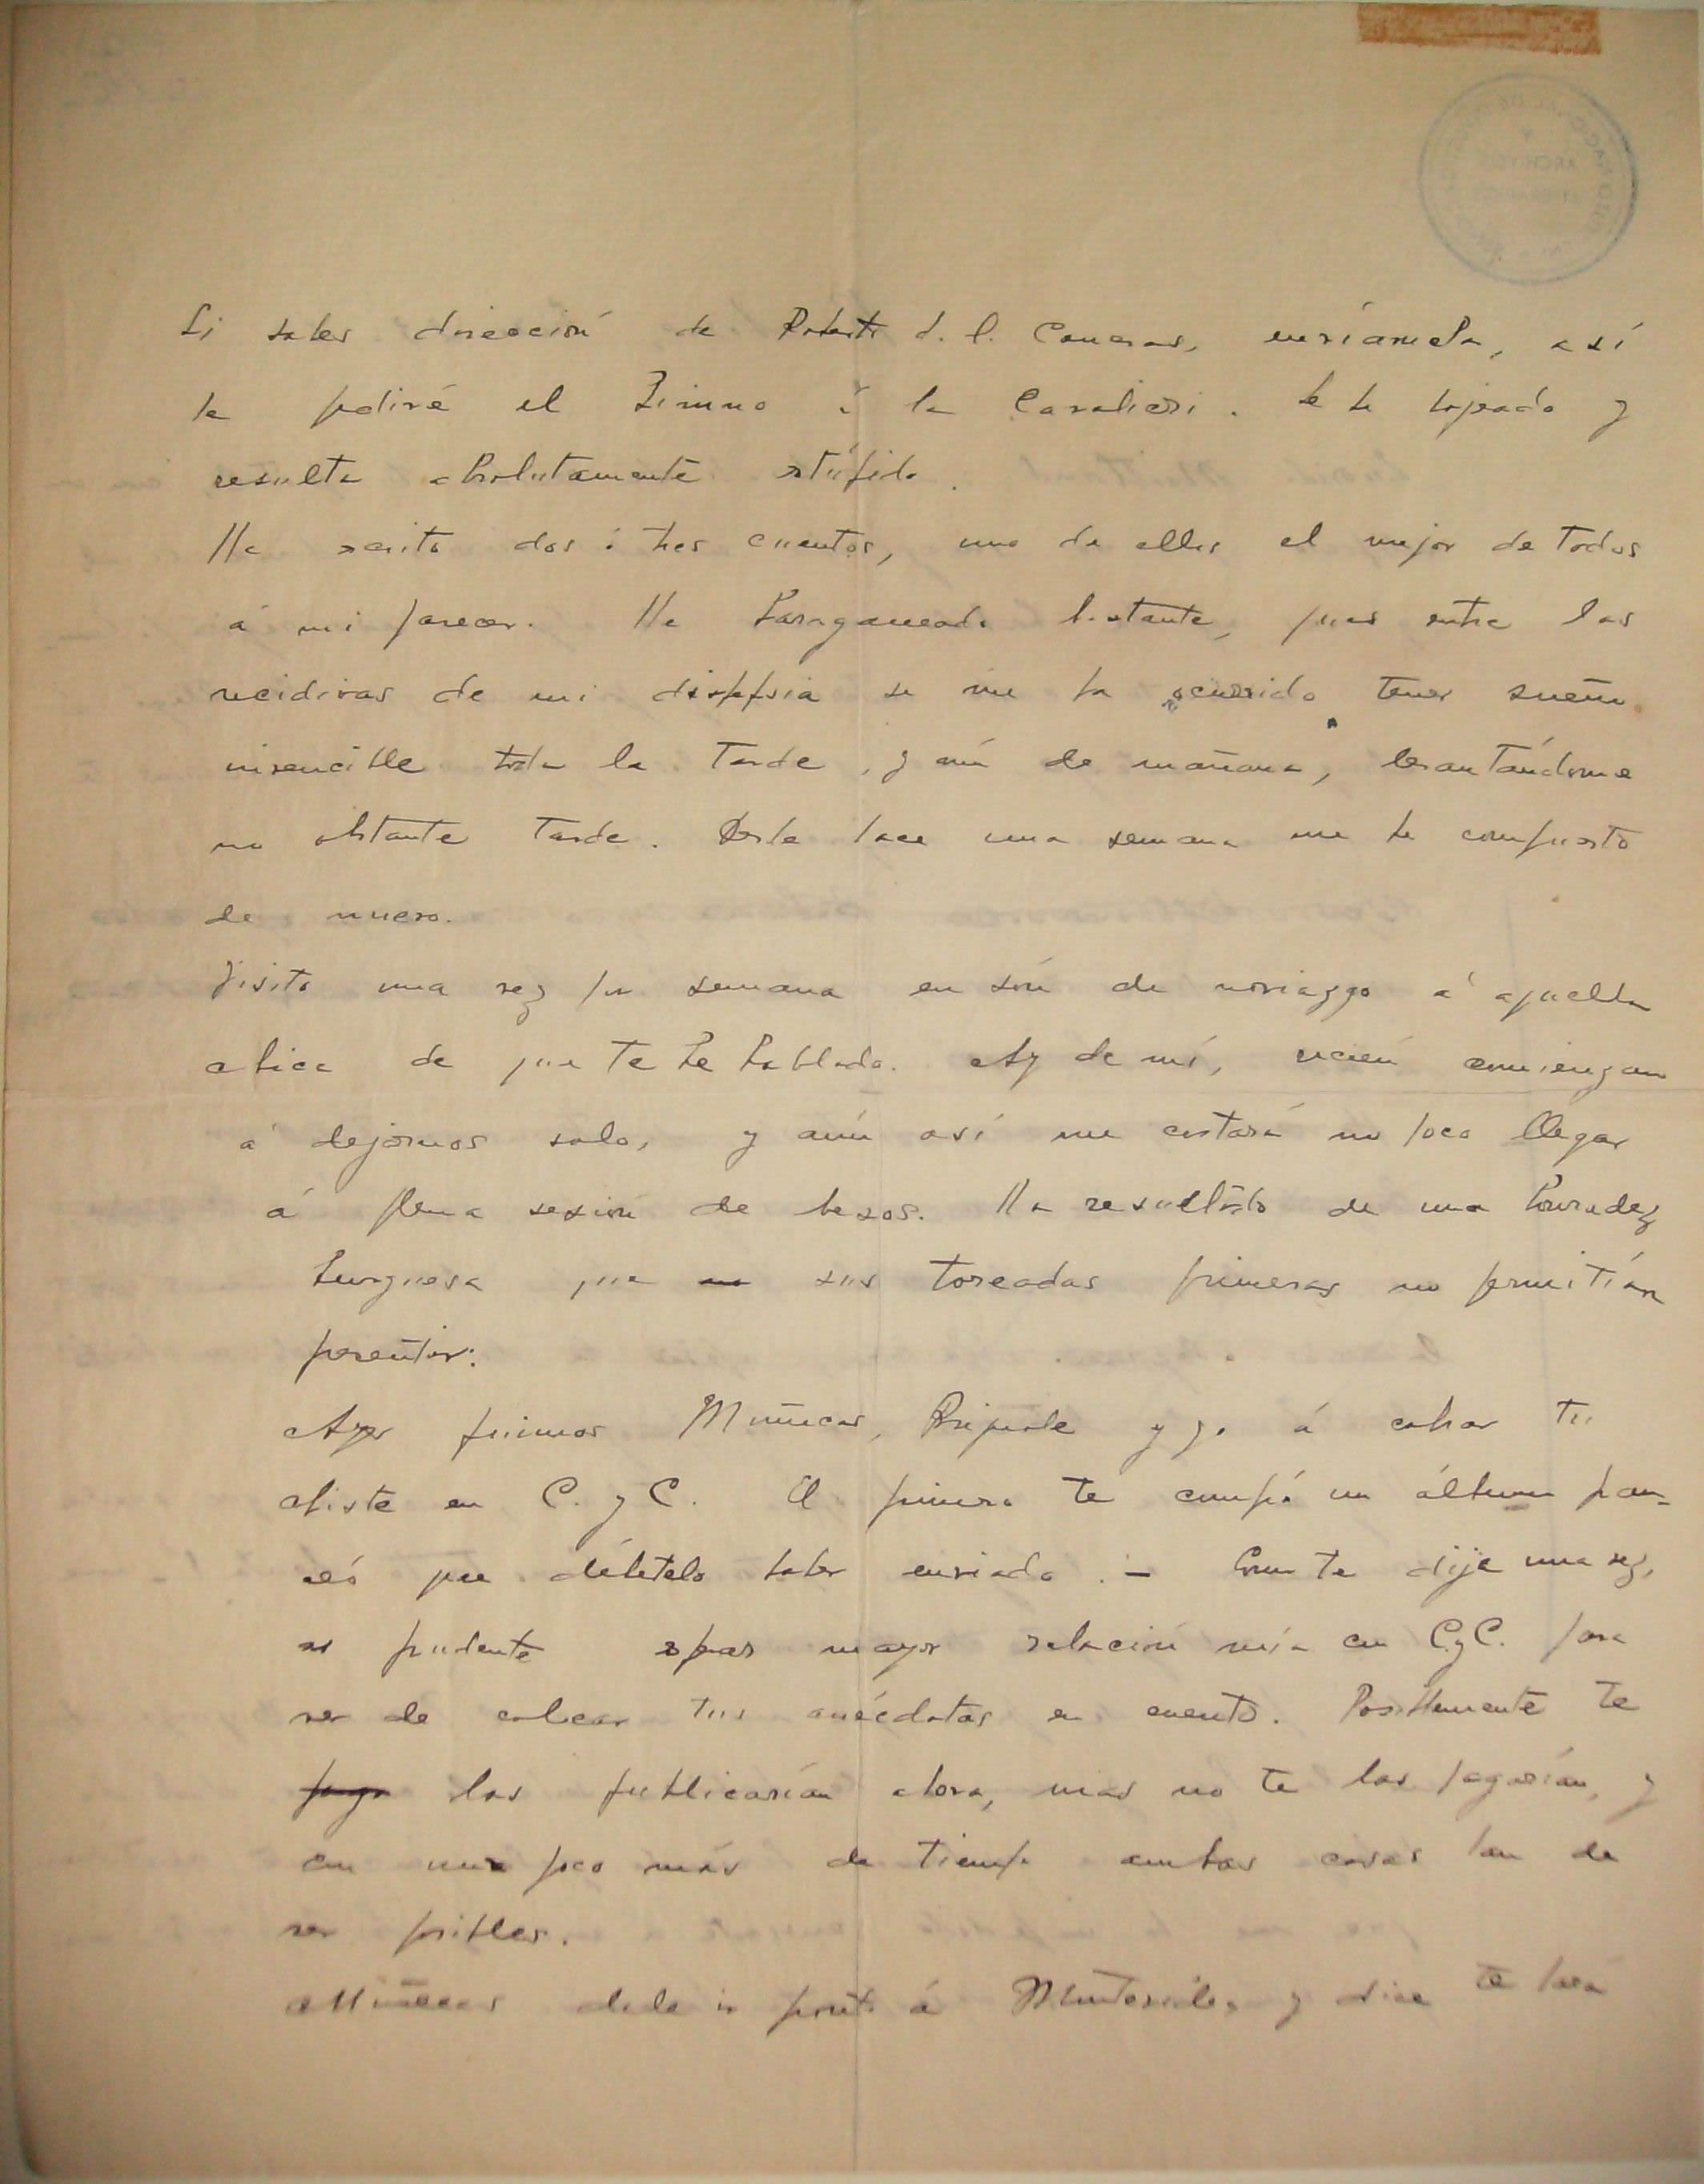 Si sabes dirección de Roberto d. l. Carreras, envíamela, así
le pediré el Himno á la Cavalieri. Le he hojeado y
resulta absolutamente estúpido.
He escrito dos ó tres cuentos, uno de ellos el mejor de todos
á mi parecer. He haraganeado bastante, pues entre las
recidivas de mi dispepsia se me ha ocurrido tener sueño
invencible toda la tarde, y aún de mañana, levantándome
no obstante tarde. Desde hace una semana me he compuesto
de nuevo.
Visito una vez por semana en són de noviazgo á aquella
chica de que te he hablado. Ay de mí, recién comienzan
á dejarnos solos, y aún así me costará no poco llegar
á plena sesión de besos. Ha resultado de una honradez
burguesa que sus toreadas primeras no permitían
presentir.
Ayer fuimos Muñecas, Brignole y yo á cobrar tu
chiste en C. y C. El primero te compró un álbum pan-
que débetelo haber enviado. — Como te dije una vez,
es prudente esperar mayor relación mía con C. y C. para
ver de colocar tus anécdotas en cuento. Posiblemente te
pago las publicarían ahora, mas no te las pagarían, y
con una poco más de tiempo ambas cosas han de
ser posibles.
Muñecas debe ir pronto á Montevideo y dice te hará